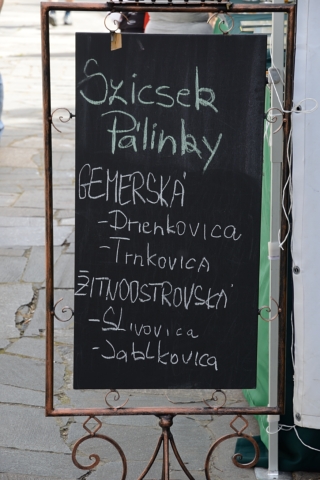 Szicsek
Pálinky
GEMERSKÁ
-Drienkovica
-Trnkovica
ŽITNOOSTROVSKÁ
-Slivovica
-Jablkovica